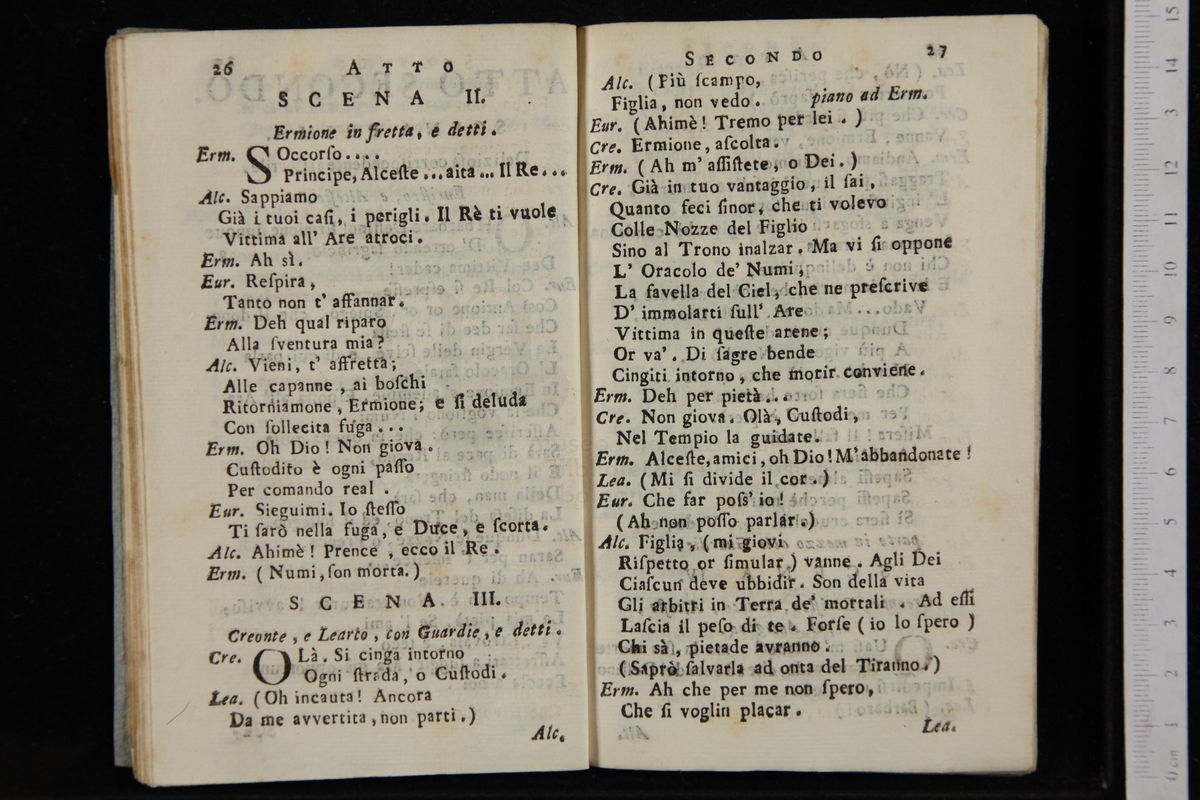 26 ATTO
SCENA II.
Ermione in fretta, e detti.
Erm. SOccorſo....
Principe, Alceſte...aita... Il Re...
Alc. Sappiamo
Già i tuoi caſi, i perigli. Il Rè ti vuole
Vittima all' Are atroci.
Erm. Ah sì.
Eur. Reſpira,
Tanto non t' affannar.
Erm. Deh qual riparo
Alla ſventura mia?
Alc. Vieni, t' affretta;
Alle capanne, ai boſchi
Ritorniamone, Ermione; e ſi deluda
Con ſollecita fuga...
Erm. Oh Dio! Non giova.
Cuſtodito è ogni paſſo
Per comando real.
Eur. Sieguimi. Io ſteſſo
Ti farò nella fuga, e Duce, e ſcorta.
Alc. Ahimè! Prence, ecco il Re.
Erm. (Numi, ſon morta.)
SCENA III.
Creonte, e Learto, con Guardie, e detti.
Cre. OLà. Si cinga intorno
Ogni ſtrada, o Cuſtodi.
Lea. (Oh incauta! Ancora
Da me avvertita, non parti.)
Alc.
SECONDO 27
Alc. (Più ſcampo,
Figlia, non vedo. piano ad Erm.
Eur. (Ahimè! Tremo per lei.)
Cre. Ermione, aſcolta.
Erm. (Ah m' aſſiſtete, o Dei.)
Cre. Già in tuo vantaggio, il ſai,
Quanto feci ſinor, che ti volevo
Colle Nozze del Figlio
Sino al Trono inalzar. Ma vi ſi oppone
L' Oracolo de' Numi,
La favella del Ciel, che ne preſcrive
D' immolarti ſull' Are
Vittima in queſte arene;
Or va'. Di ſagre bende
Cingiti intorno, che morir conviene.
Erm. Deh per pietà...
Cre. Non giova. Olà, Cuſtodi,
Nel Tempio la guidate.
Erm. Alceſte, amici, oh Dio! M' abbandonate!
Lea. (Mi ſi divide il cor.)
Eur. Che far poſs' io!
(Ah non poſſo parlar.)
Alc. Figlia, (mi giovi
Riſpetto or ſimular) vanne. Agli Dei
Ciaſcun deve ubbidir. Son della vita
Gli arbitri in Terra de' mortali. Ad eſſi
Laſcia il peſo di te. Forſe (io lo ſpero)
Chi sà, pietade avranno.
(Saprò ſalvarla ad onta del Tiranno.)
Erm. Ah che per me non ſpero,
Che ſi voglin placar.
Lea.
0 cm 1 2 3 4 5 6 7 8 9 10 11 12 13 14 15